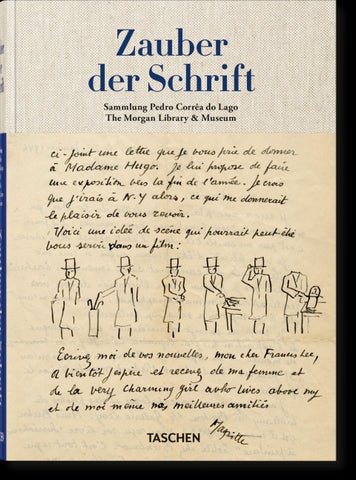 Zauber
der Schrift
Sammlung Pedro Corrêa do Lago
The Morgan Library & Museum
ci-joint une lettre que je vous prie de donner
à Madame Hugo. Je lui propose de faire
une exposition vers la fin de l'année. Je crois
que j'irais à N.Y alors, ce qui me donnerait
le plaisir de vous revoir.
Voici une idée de scène qui pourrait peut-être
vous servir dans un film:
Ecrivez moi de vos nouvelles, mon cher Francis Lee,
A bientôt j'espère et recevez de ma femme et
de la very charming girl who lives above my
et de moi même nos meilleures amitiés
Magritte
TASCHEN